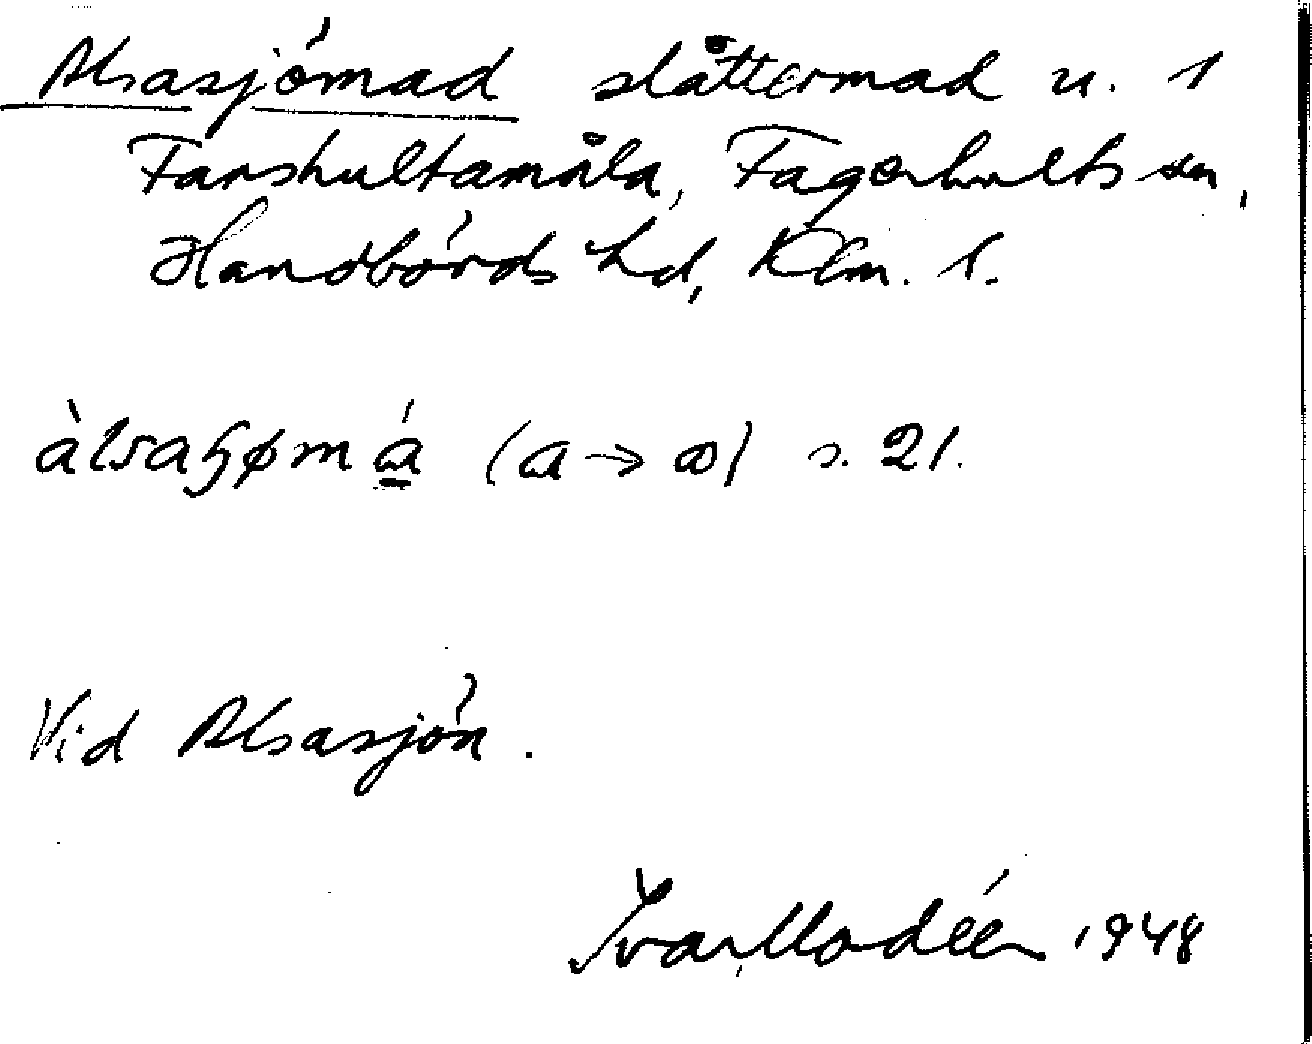 Alsasjömad slåttermad u. 1
Farshultamåla, Fagerhults sn,
Handbörds hd, Klm. l.
àlsaɧømá (a → ɷ) s. 21.
Vid Alsasjön.
Ivar Modéer 1948